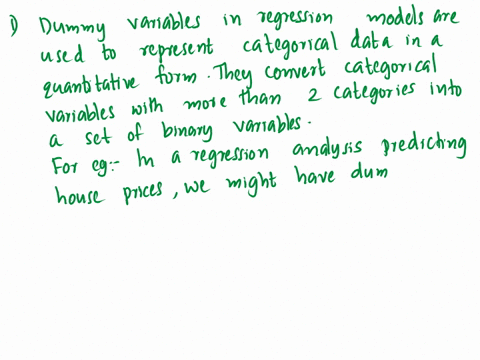 1) Dummy variables in regression models are
used to represent categorical data in a
quantitative form. They convert categorical
variables with more than 2 categories into
a set of binary variables.
For eg:- In a regression analysis predicting
house prices, we might have dum